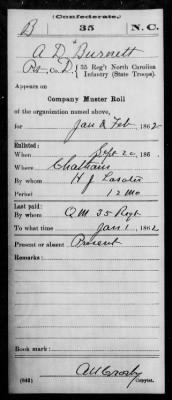 (Confederate.)
B 35 N.C.
A D Burnett
Pvt, Co. D, 35 Reg't North Carolina
Infantry (State Troops).
Appears on
Company Muster Roll
of the organization named above,
for Jan & Feb, 1862
Enlisted:
When Sept 20, 186
Where Chatham
By whom H J Lasater
Period 12 Mo
Last paid:
By whom Q M 35 Regt
To what time Jan 1, 1862
Present or absent Present
Remarks:
Book mark:
(642) Crosby
Copyist.